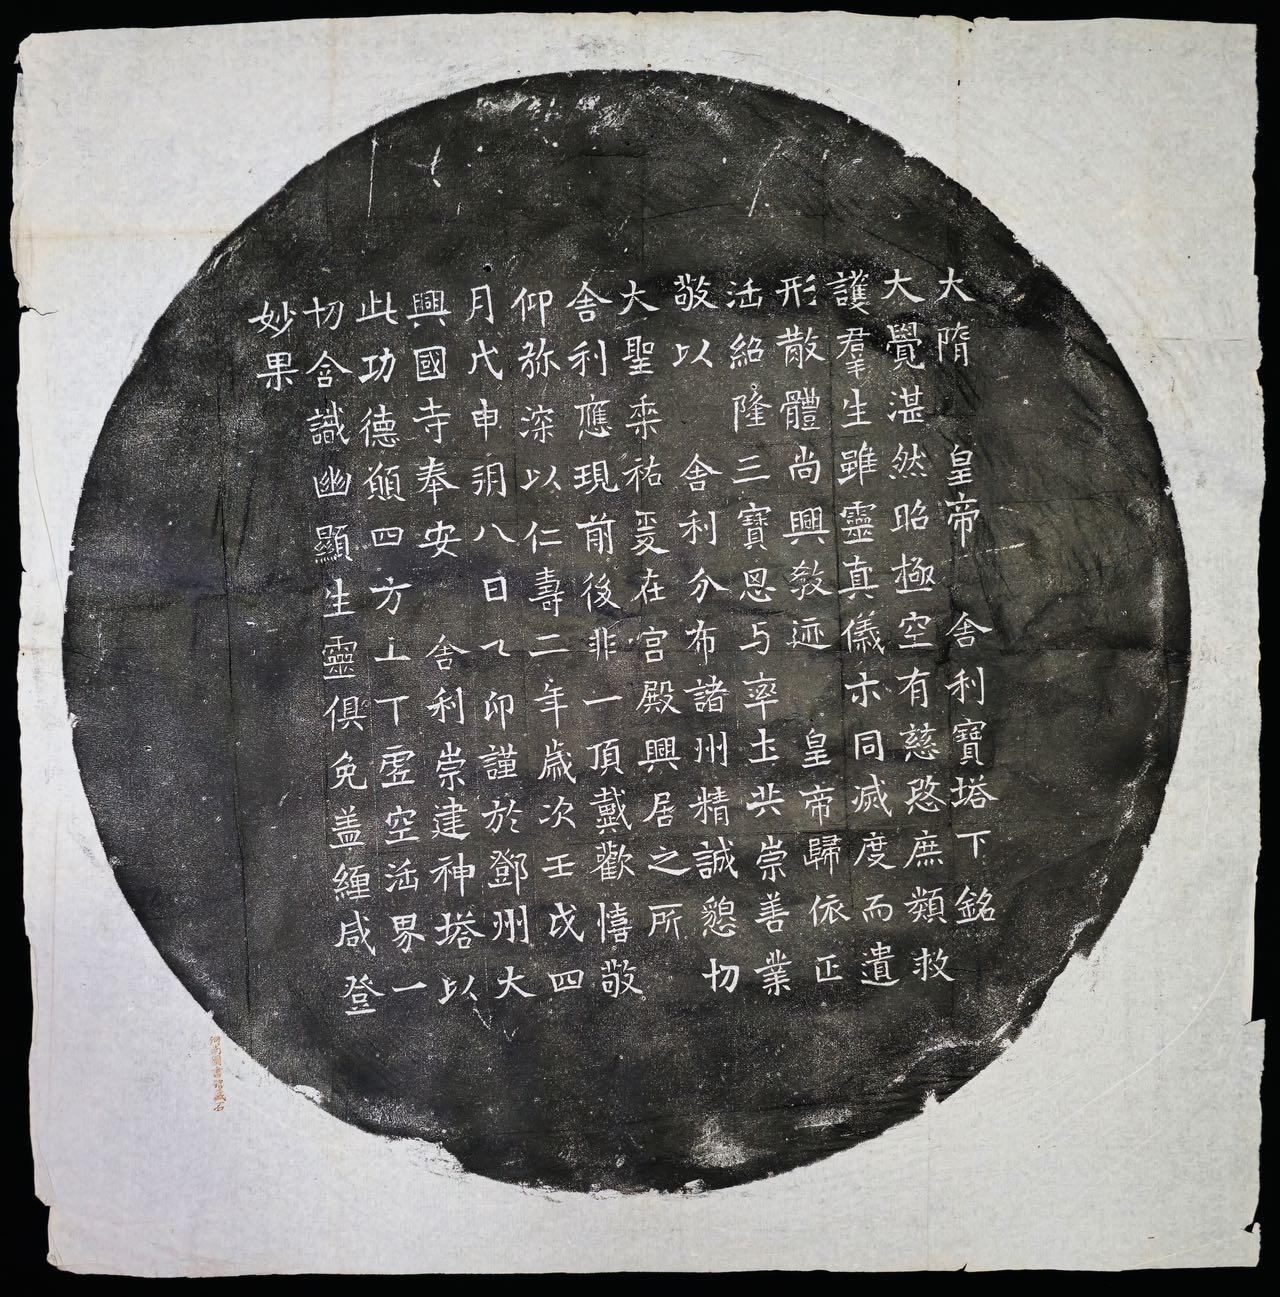 大隋　皇帝　舎利寶塔下銘
大覺湛然昭極空有慈愍庶類救
護羣生雖靈真儀示同滅度而遺
形散體尚興敎迹　皇帝歸依正
法紹隆三寶思与率土共崇善業
敬以　舎利分布諸州精誠懇切
大聖乗祐爰在宫殿興居之所
舎利應現前後非一頂戴歡憘敬
仰弥深以仁壽二年歳次壬戌四
月戊申朔八日乙卯謹於鄧州大
興國寺奉安　舎利崇建神塔以
此功德願四方上下虚空法界一
切含識幽顯生靈俱免盖纏咸登
妙果
河南圖書館藏石